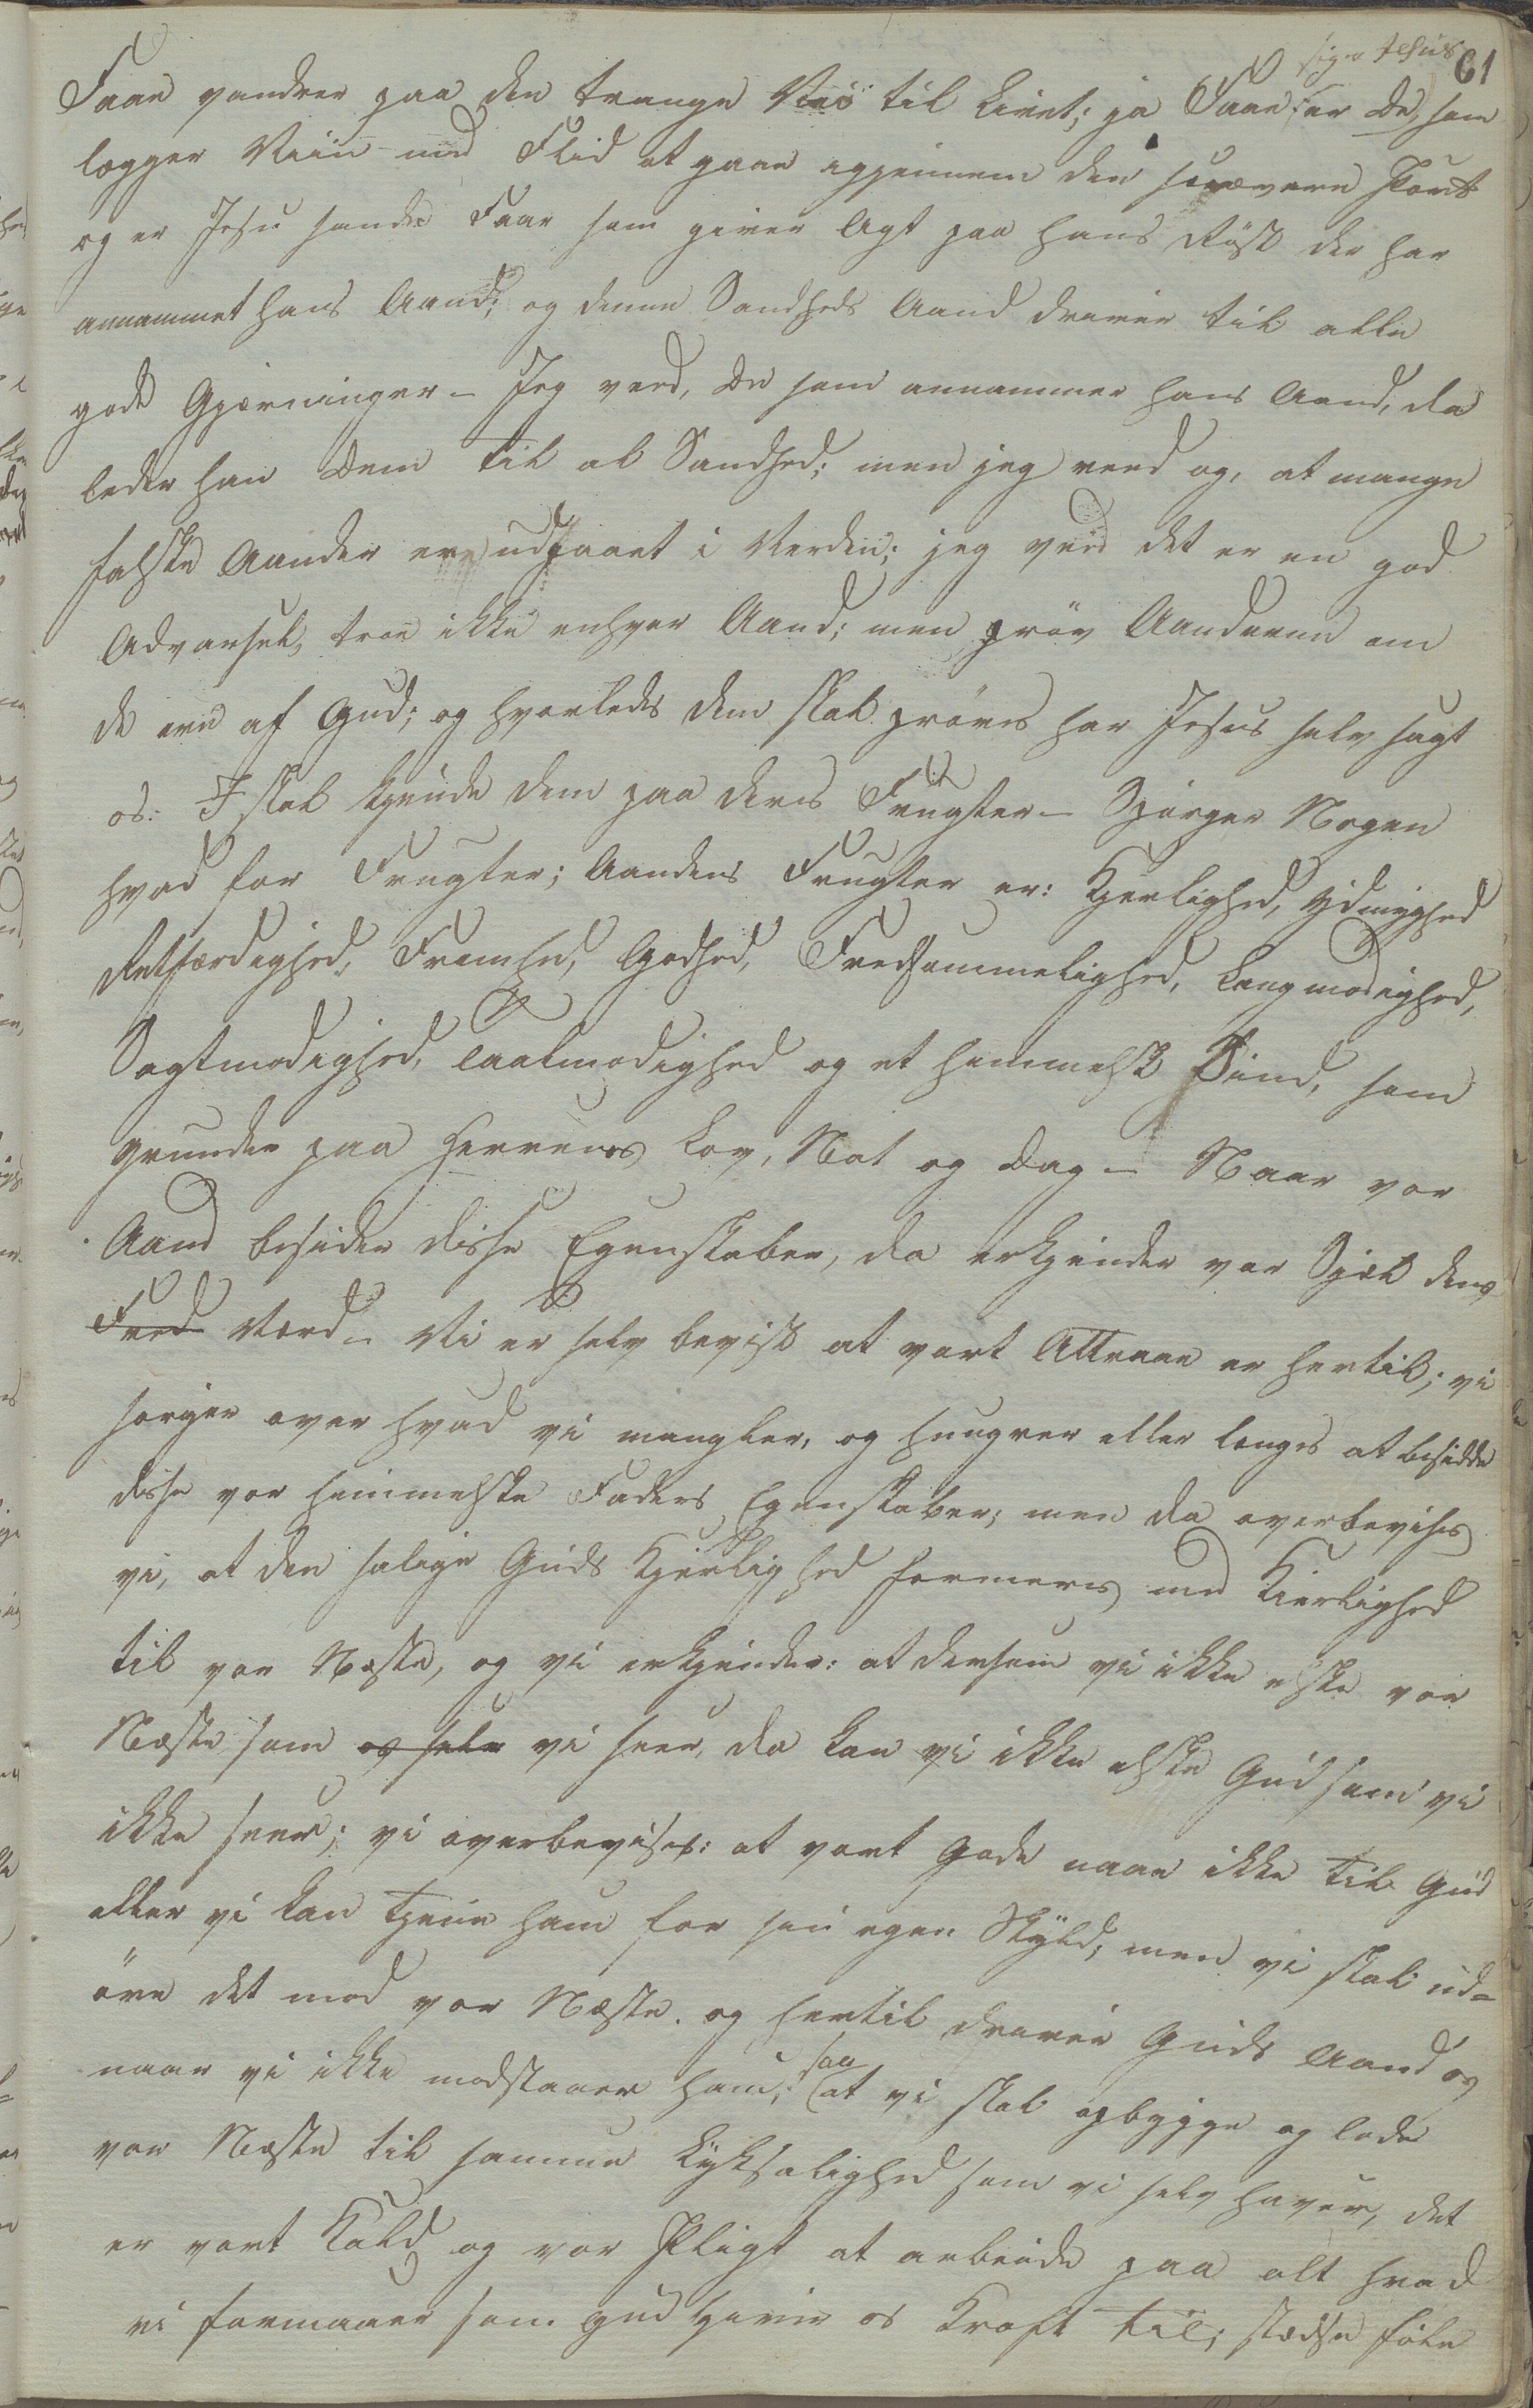 siger Jesus 61
Faae vandrer paa den trange Vei til Livet; ja Faae er De, som
lægger Viin med Flid at gaae igjennem den snævere Port
og er Jesu sande Faar som giver Agt paa hans Røst der har
annammet hans Aand; og denne Sandheds Aand driver til alle
gode Gjærninger – Jeg veed, de som annammer hans Aand, da
leder han dem til al Sandhed; men jeg veed og, at mange
falske Aander ere udgaaet i Verden; jeg veed det er en god
Advarsel, troe ikke enhver Aand; men prøv Aanderne om
de ere af Gud; og hvorledes dem skal prøves har Jesus selv sagt
os: I skal kjende dem paa deres Frugter – Spørger Nogen
hvad for Frugter; Aandens Frugter er: Kjerlighed, Ydmyghed
Retfærdighed, Fromhed, Godhed, Fredsommelighed, Langmodighed,
Sagtmodighed, Taalmodighed og et himmelsk Sind, som
grunder paa Herrens Lov, Nat og Dag – Naar vor
Aand besidder disse Egenskaber, da erkjender vor Sjæl dens
Fred Værd – Vi er selv bevist at vort Attraae er hertil; vi
sørger over hvad vi mangler, og hungrer eller længes at besidde
disse vor himmelske Faders Egenskaber; men da overbevises
vi, at den salige Guds Kjerlighed formeres med Kierlighed
til vor Næste, og vi erkjender: at dersom vi ikke elske vor
Næste som os selv vi seer, da kan vi ikke elske Gud som vi
ikke seer; vi overbevises: at vort Gode naaer ikke til Gud
eller vi kan tjene ham for sin egen Skyld; men vi skal ud=
øve det mod vor Næste. og hertil driver Guds Aand os
naar vi ikke modstaaer ham; saa at vi skal opbygge og lede
vor Næste til samme Lyksalighed som vi selv haver, det
er vort Kald og vor Pligt at arbeide paa alt hvad
vi formaaer som Gud giver os Kraft til; stedse søke